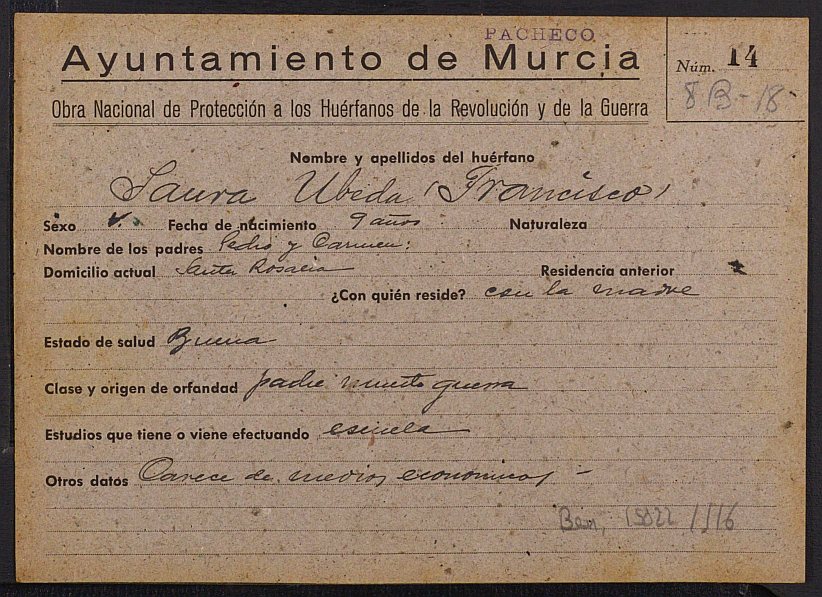 PACHECO
Ayuntamiento de Murcia
Núm. 14
8 B-18
Obra Nacional de Protección a los Huérfanos de la Revolución y de la Guerra
Nombre y apellidos del huérfano
Saura Ubeda (Francisco)
Sexo V. Fecha de nacimiento 9 años. Naturaleza
Nombre de los padres Pedro y Carmen:
Domicilio actual Santa Rosalia Residencia anterior
¿Con quién reside? con la madre
Estado de salud Buena
Clase y origen de orfandad padre muerto guerra
Estudios que tiene o viene efectuando escuela
Otros datos Carece de medios economicos -
Ben,